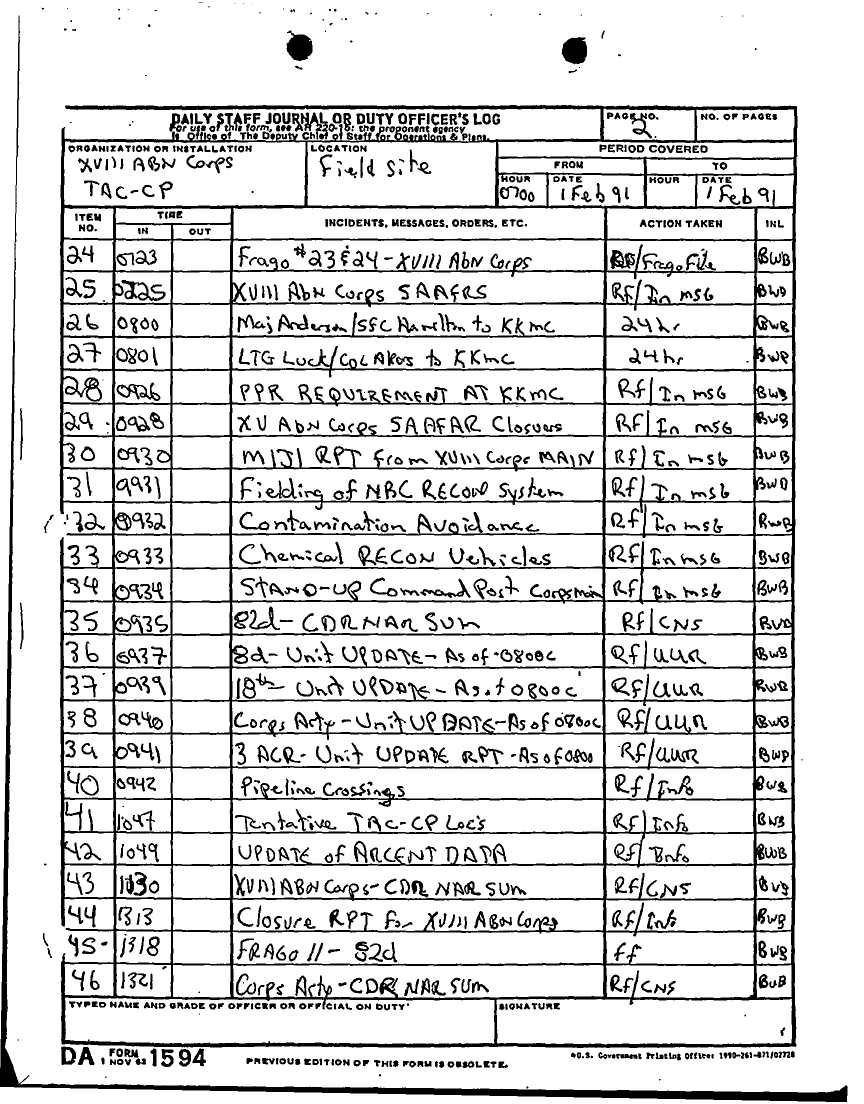 DAILY STAFF JOURNAL OR DUTY OFFICER'S LOG
For use of this form, see AR 220-15; the proponent agency
is Office of The Deputy Chief of Staff for Operations & Plans.
PAGE NO.
2
NO. OF PAGES
ORGANIZATION OR INSTALLATION
XVIII ABN Corps
TAC-CP
LOCATION
Field Site
PERIOD COVERED
FROM TO
HOUR DATE HOUR DATE
0700 1 Feb 91 1 Feb 91
ITEM NO. TIME IN OUT INCIDENTS, MESSAGES, ORDERS, ETC. ACTION TAKEN INL
24 0723 Frago #23&24-XVIII Abn Corps Frago File BWB
25 XVIII Abn Corps SAAFRS Rf/In msg BWB
26 0800 Maj Anderson/SFC Hamilton to KKMC 24hr BWB
27 0801 LTG Luck/COL to KKMC 24hr BWB
28 0926 PPR REQUIREMENT AT KKMC Rf/In msg BWB
29 0928 XV Abn Corps SAAFAR Closures Rf/In msg BWB
30 0930 MIJI RPT from XVIII Corps MAIN Rf/In msg BWB
31 9931 Fielding of NBC RECON System Rf/In msg BWB
32 0932 Contamination Avoidance Rf/In msg BWB
33 0933 Chemical RECON Vehicles Rf/In msg BWB
34 0934 STAND-UP Command Post Corpsmain Rf/In msg BWB
35 0935 82d-CDR NAR SUM Rf/CNS BWB
36 0937 8d-Unit UPDATE-As of-0800C Rf/UUR BWB
37 0939 18th Unit UPDATE-As of 0800C Rf/UUR BWB
38 0940 Corps Arty-Unit UPDATE-As of 0800C Rf/UUR BWB
39 0941 3 ACR-Unit UPDATE RPT-As of 0800 Rf/UUR BWB
40 0942 Pipeline Crossings Rf/Info BWB
41 1047 Tentative TAC-CP Loc's Rf/Info BWB
42 1049 UPDATE of ARCENT DATA Rf/Info BWB
43 1130 XVIII ABN Corps-CDR NAR SUM Rf/CNS BWB
44 1313 Closure RPT for XVIII ABN Corps Rf/Info BWB
45 1318 FRAGO 11-82d ff BWB
46 1321 Corps Arty-CDR NAR SUM Rf/CNS BWB
TYPED NAME AND GRADE OF OFFICER OR OFFICIAL ON DUTY SIGNATURE
DA FORM 1 NOV 62 1594 PREVIOUS EDITION OF THIS FORM IS OBSOLETE.
*U.S. Government Printing Office: 1990-261-871/02728